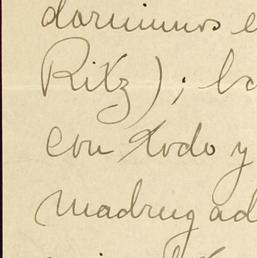 dormimos e
Ritz); ba
con todo y
madrugad